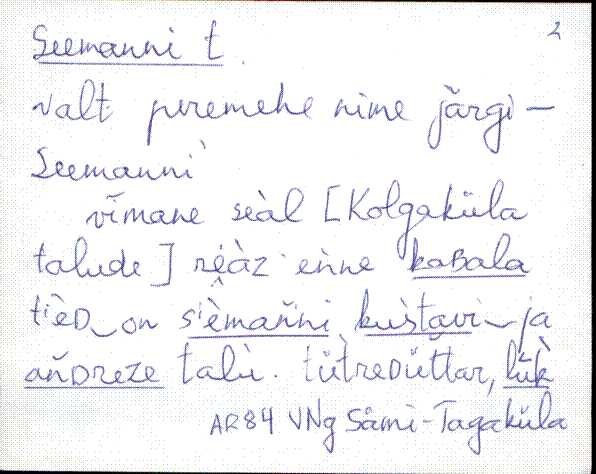 2
Seemanni t.
valt peremehe nime järgi –
Seemanni
vĩmane seàl [Kolgaküla
talude] réàz enne kaBala
tièD on sièmañni kustavi ja
añdreze talù. tütreDüttar, lük̀
AR84 VNg Sämi-Tagaküla